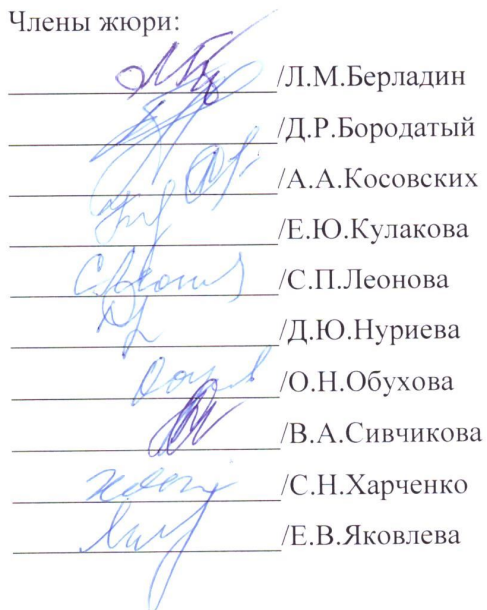 Члены жюри:
/Л.М.Берладин
/Д.Р.Бородатый
/А.А.Косовских
/Е.Ю.Кулакова
/С.П.Леонова
/Д.Ю.Нуриева
/О.Н.Обухова
/В.А.Сивчикова
/С.Н.Харченко
/Е.В.Яковлева